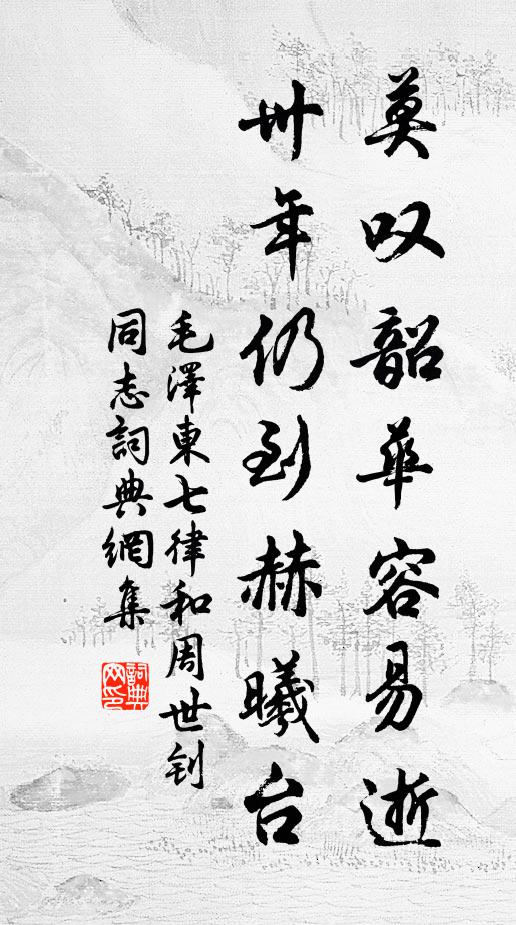 莫叹韶华容易逝
卅年仍到赫曦台
毛澤東七律和周世钊
同志詞典網集
詞典网印